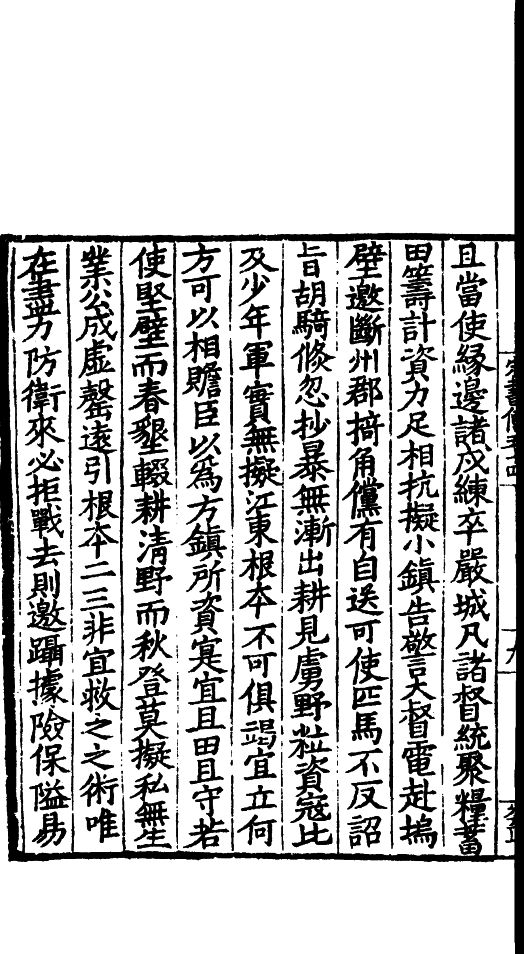 且當使緣邊諸戍練卒嚴城凡諸督統聚糧蓄
田籌計資力足相抗擬小鎮告警大督電赴塢
壁邀斷州郡掎角儻有自送可使匹馬不反詔
旨胡騎倏忽抄暴無漸出耕見虜野粒資寇比
及少年軍實無擬江東根本不可俱竭宜立何
方可以相贍臣以為方鎮所資寔宜且田且守若
使堅壁而春墾輟耕清野而秋登莫擬私無生
業公成虛罄遠引根本二三非宜救之之術唯
在盡力防衛來必拒戰去則邀躡據險保隘易